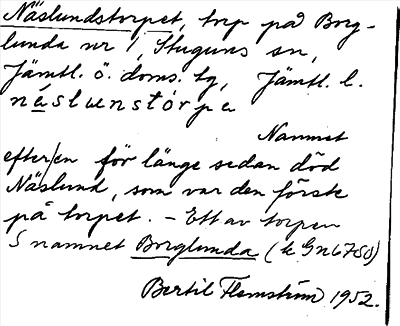 Näslundstorpet, torp på Borg-
lunda nr 1, Stuguns sn,
Jämtl. ö. doms. tg, Jämtl. l.
näslunstórpe
Namnet
efter en för länge sedan död
Näslund, som var den förste
på torpet. - Ett av torpen
S namnet Borglunda (k Gn 6750)
Bertil Flemström 1952.